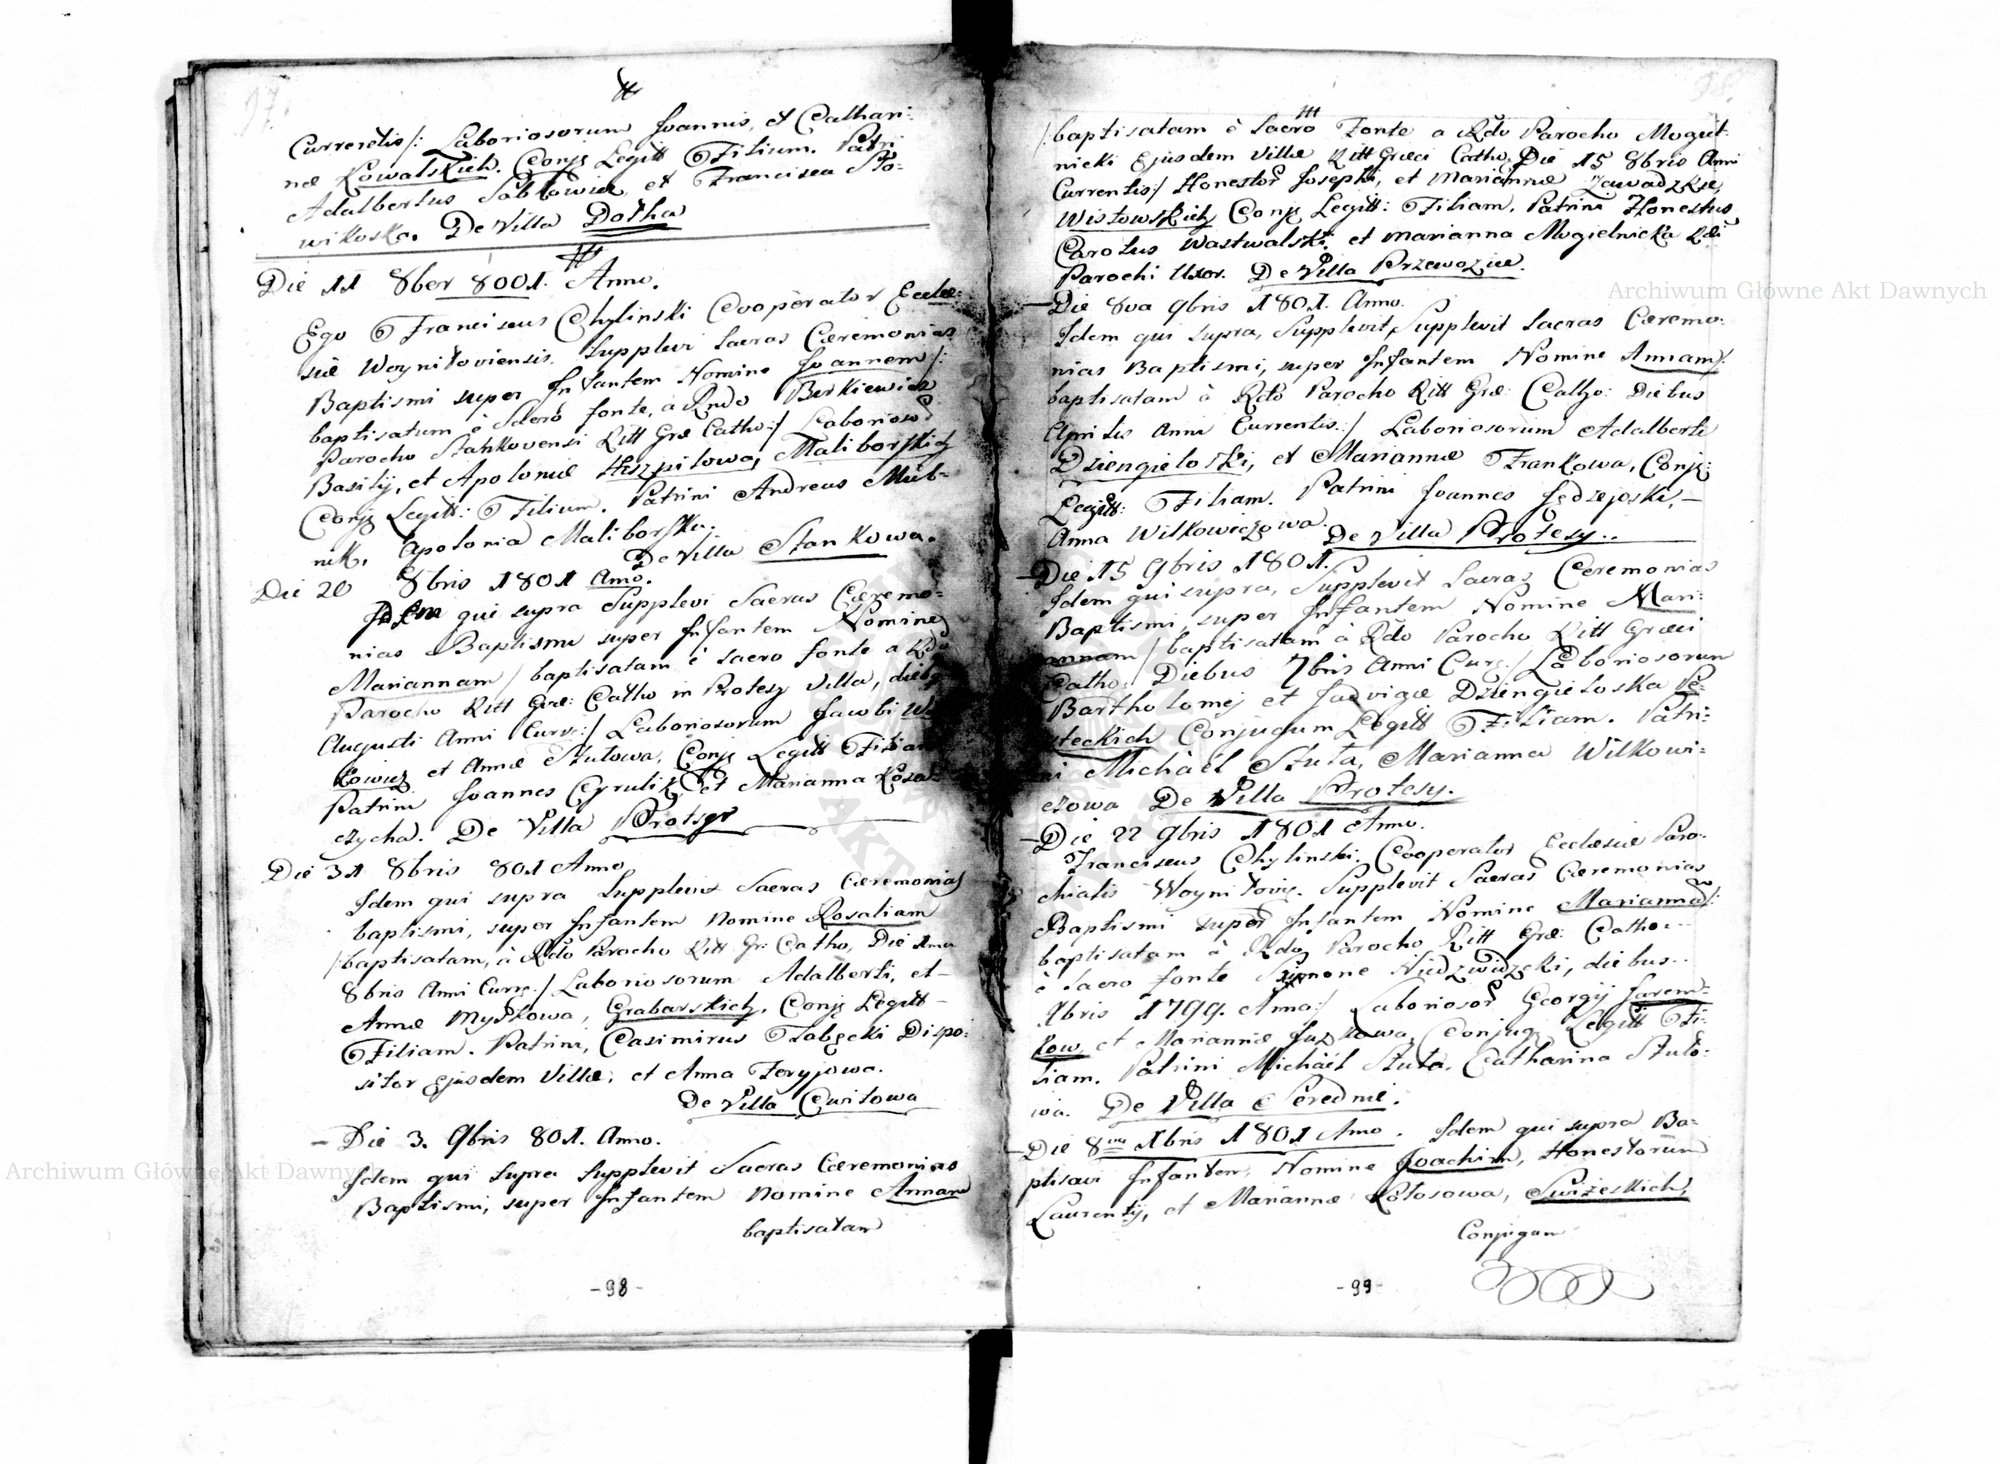 97.
Currentis/: Laboriosorum Joannis, et Cathari:
næ Kowalskich. Conjg Legitt Filium. Patri
Adalbertus Sobkowicz, et Francisca Sło-
wikoska. De Villa Dołha
Die 11 8ber 8001. Anno.
Ego Franciscus Chylinski Cooperator Eccle:
siæ Woyniłoviensis. Supplevi Sacras Cæremonias
Baptismi super Infantem Nomine Joannem/:
baptisatum è Sacro fonte, a Rndo Birkiewicz
Parocho Stankovensi Ritt Græ Catho:/ Laborios
Basilij, et Apoloniæ Hszpilowa, Maliborskich
Conjg Legitt: Filium. Patrini Andreas Mieb-
nik, Apolonia Maliborska.
De Villa Stankowa.
Die 20 8bris 1801 Anno.
Idem qui supra Supplevi Sacras Cæremo-
nias Baptismi super Infantem Nomine
Mariannam / baptisatam è sacro fonte a Rdo
Parocho Ritt Græ: Catho in Protesy Villa, dieb
Augusti Anni Curr:/ Laboriosorum Jacobi
kowicz et Annæ Szutowa, Conjg Legitt Filiam
Patrini Joannes Cyrulik, et Marianna
czycha. De Villa Protesy
Die 31 8bris 801 Anno
Idem qui supra Supplevit Sacras Cæremonias
baptismi, super Infantem nomine Rosaliam
/baptisatam, à Rdo Parocho Ritt Gr: Catho, Die 1ma
8bris Anni Curr:/ Laboriosorum Adalberti, et-
Annæ Myśkowa, Grabarskich, Conjg Legitt-
Filiam. Patrini, Casimirus Dispo:
sitor Ejusdem Villæ, et Anna Feryjowa.
De Villa Cwitowa
- Die 3. 9bris 801. Anno.
Idem qui supra Supplevit Sacras Cæremonias
Baptismi, super Infantem Nomine Annam
baptisatam
-98-
98.
/baptisatam è Sacro Fonte a Rdo Parocho Mogiel-
nicki Ejusdem Villæ Ritt Græci Catho. Die 15 8bris Anni
Currentis:/ Honestor Josephi, et Mariannæ Zawadzkie
Wistowskich Conjg Legitt: Filiam. Patrini Honestus
Carolus Wastwalski, et Marianna Mogielnicka Rdi
Parochi Uxor. De Villa Przewoziec.
-Die 8va 9bris 1801. Anno.
Idem qui supra, Supplevit, Supplevit Sacras Cæremo-
nias Baptismi, super Infantem Nomine Annam/:
baptisatam à Rdo Parocho Ritt Græ: Catho: Diebus
Aprilis Anni Currentis:/ Laboriosorum Adalberti
Dziengieloski, et Mariannæ Frankowa, Conjg:
Legitt: Filiam. Patrini Joannes Jędzejoski,-
Anna Wilkowiczowa. De Villa Protesy..
-Die 15 9bris 1801.
Idem qui supra, Supplevit Sacras Cæremonias
Baptismi, super Infantem Nomine Mari-
annam / baptisatam à Rdo Parocho Ritt Græci
Catho: Diebus 7bris Anni Curr:/ Laboriosorum
Bartholomej et Jadvigæ Dziengieloska
Conjugum Legitt Filiam. Patri-
ni Michael Szuta, Marianna Wilkowi-
czowa De Villa Protesy.
-Die 22 9bris 1801 Anno.
Franciscus Chylinski Cooperator Ecclesiæ Paro-
chialis Woyniłovi. Supplevit Sacras Cæremonias
Baptismi super Infantem Nomine Marianna/:
baptisatam à Rdo Parocho Ritt Græ: Catho:
è Sacro fonte Simone Niedzwidzcki, diebus..
9bris 1799. Anno:/ Laborios Georgij Jarem-
kow, et Mariannæ Juzkowa, Conjug Legitt Fi-
liam. Patrini Michael Szuta, Catharina Szuto-
wa. De Villa Serednie.
-Die 8va Xbris 1801 Anno. Idem qui supra Ba-
ptisavi Infantem, Nomine Joachim, Honestorum
Laurentij, et Mariannæ Kołosowa, Swirzeskich,
Conjugum
-99-
Archiwum Główne Akt Dawnych
Archiwum Główne Akt Dawnych